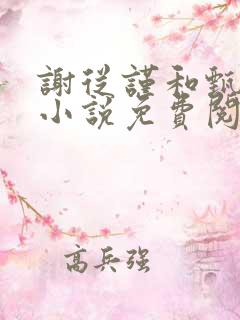 謝從謹和甄
小說免費閱
高兵强